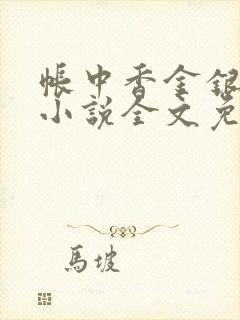 帳中香金銀
小說全文免
馬坡